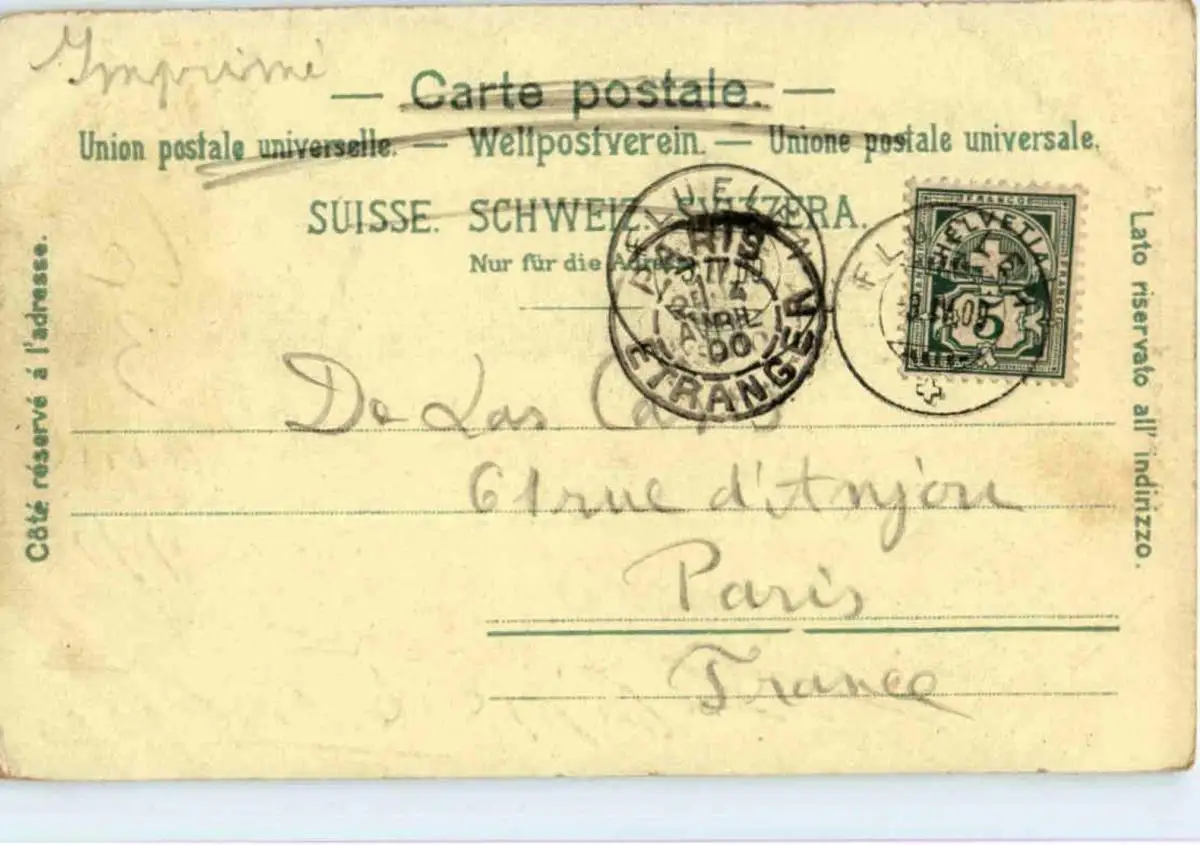 Imprimé
— Carte postale. —
Union postale universelle. — Weltpostverein. — Unione postale universale.
SUISSE. SCHWEIZ. SVIZZERA.
Nur für die Adresse
Côté réservé á l'adresse.
Lato riservato all' indirizzo.
FRANCO
HELVETIA
5
PARIS
AVRIL
00
ETRANGER
De Las Cases
61 rue d'Anjou
Paris
France